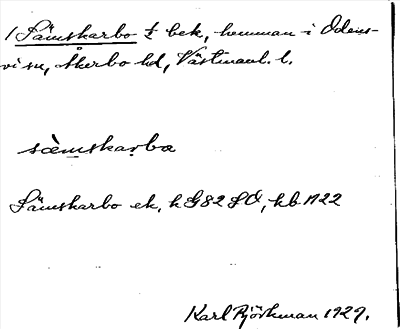 1 Sämskarbo ½ bek, hemman i Odens-
vi sn, Åkerbo hd, Västmanl. l.
sèmskarba
Sämskarbo ek, h G82 SO, kb 1722
Karl Björkman 1927.